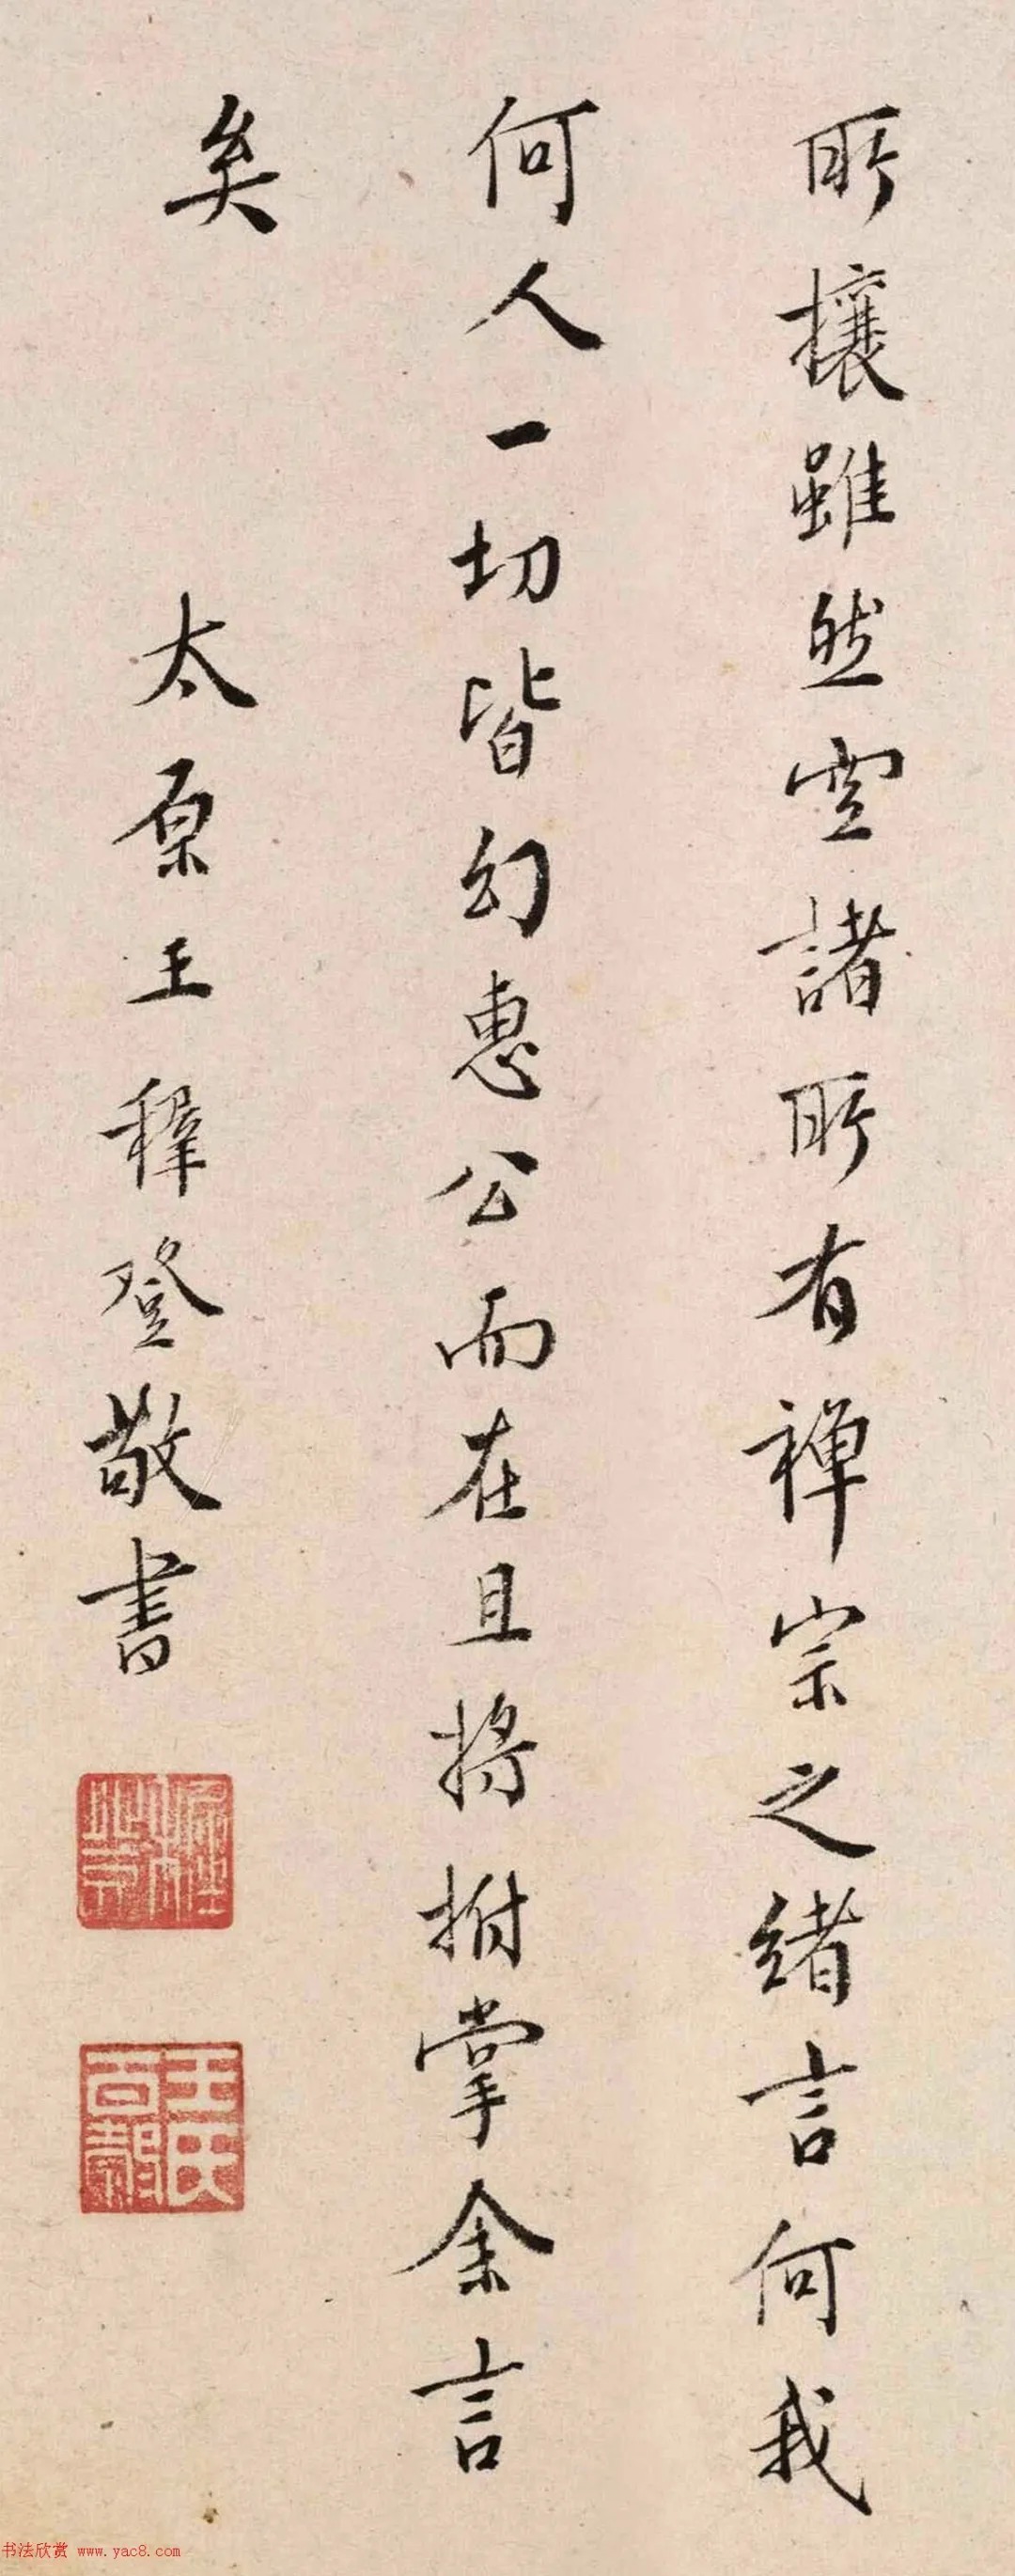 所攘雖然空諸所有禅宗之緒言何我
何人一切皆幻惠公而在且将拊掌余言
矣
太原王穉登敬書
王氏百穀
书法欣赏 www.yac8.com